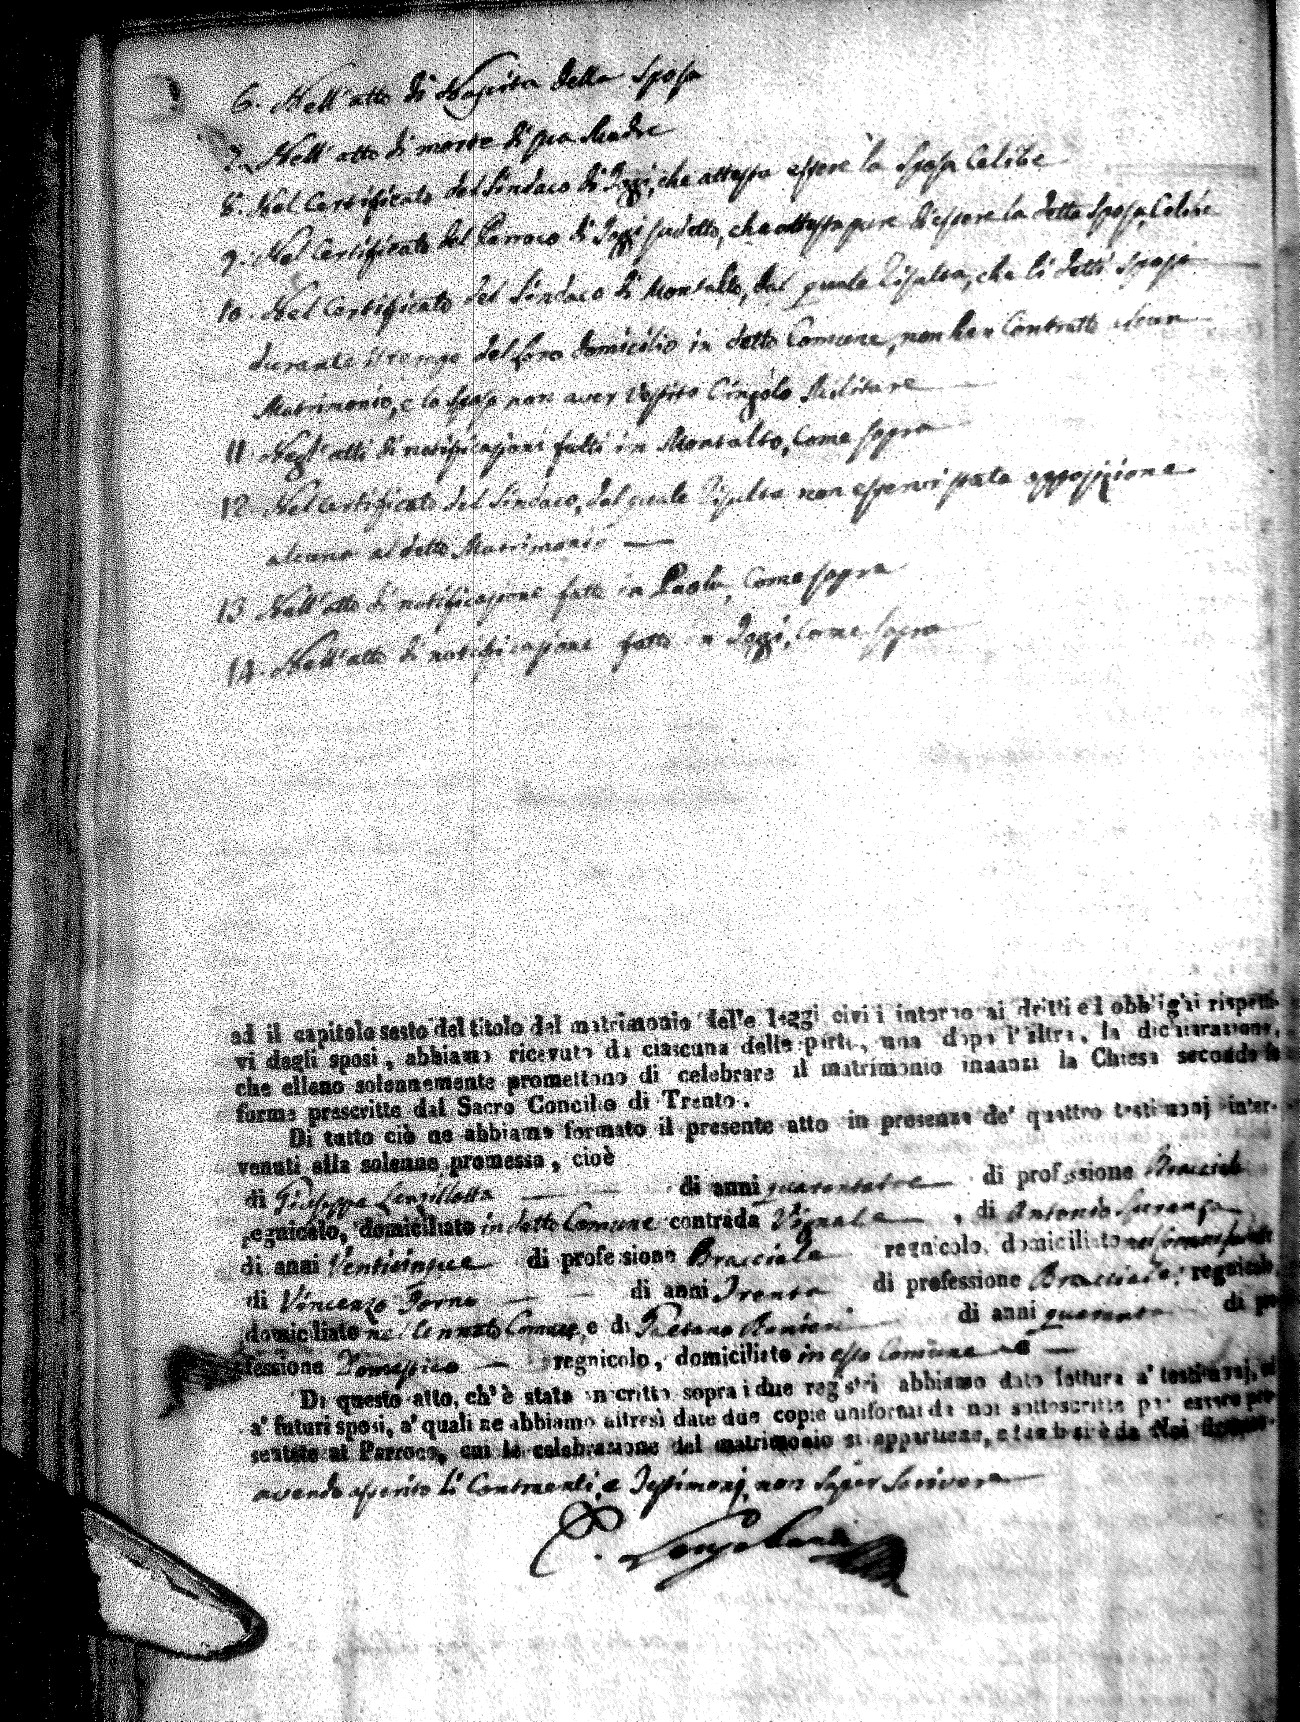 6. Nell'atto di Nascita della Sposa
7. Nell'atto di morte di sua Madre
8. Nel Certificato del Sindaco di Joggi, che attesta essere la Sposa Celibe
9. Nel Certificato del Parroco di Joggi sudetto, che attesta pure di essere la detta Sposa Celibe
10. Nel Certificato del Sindaco di Montalto, dal quale risulta, che li detti Sposi
durante il tempo del loro domicilio in detto Comune, non han Contratto alcun
Matrimonio, e lo sposo non aver Vestito Cingolo Militare
11. Negl'atti di notificazioni fatti in Montalto, Come sopra
12. Nel Certificato del Sindaco, dal quale risulta non esservi stata opposizione
alcuna al detto Matrimonio
13. Nell'atto di notificazione fatto in Paola, Come sopra
14. Nell'atto di notificazione fatto in Joggi, Come sopra
ad il capitolo sesto del titolo del matrimonio delle leggi civili intorno ai dritti ed obblighi rispetti-
vi degli sposi, abbiamo ricevuto da ciascuna delle parti, una dopo l'altra, la dichiarazione,
che elleno solennemente promettono di celebrare il matrimonio innanzi la Chiesa secondo le
forme prescritte dal Sacro Concilio di Trento.
Di tutto ciò ne abbiamo formato il presente atto in presenza de' quattro testimonj inter-
venuti alla solenne promessa, cioè
di Giuseppe Lanzillotta di anni quarantatre di professione Bracciale
regnicolo, domiciliato in detto Comune contrada Vignale, di Antonio Sparanga
di anni Venticinque di professione Bracciale regnicolo, domiciliato
di Vincenzo Forno di anni Trenta di professione Bracciale, regnicolo,
domiciliato nell'ennato Comune, e di Gaetano Ranieri di anni quaranta di pro
fessione Domestico regnicolo, domiciliato in esso Comune
Di questo atto, ch'è stato inscritto sopra i due registri abbiamo dato lettura a' testimonj, ed
a' futuri sposi, a' quali ne abbiamo altresì date due copie uniformi da noi sottoscritte per essere pre-
sentate al Parroco, cui la celebrazione del matrimonio si appartiene, e indi si è da Noi firmato
avendo asserito li Contraenti, e Testimonj, non saper Scrivere